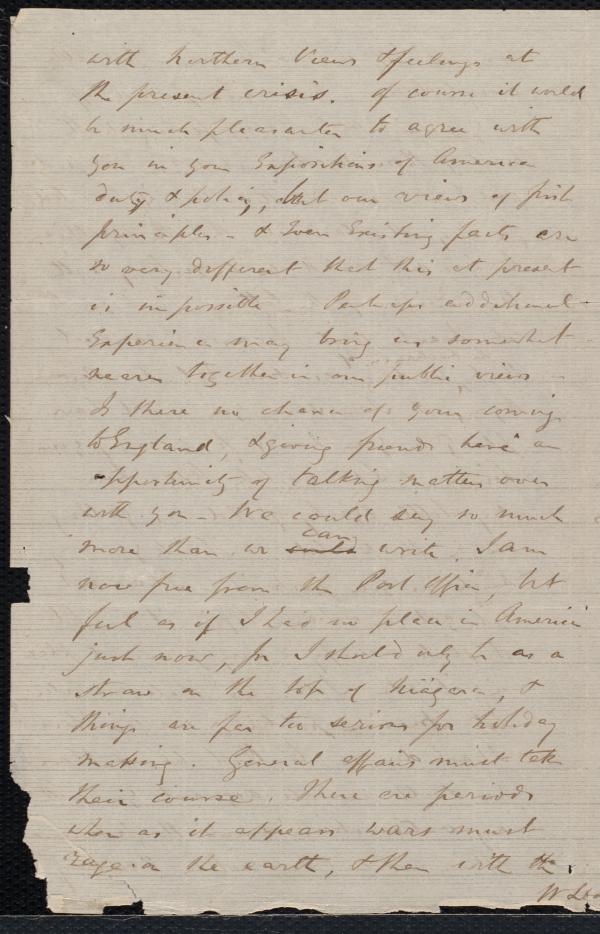 with Northern Views & feelings at
the present crisis. Of course it would
be much pleasanter to agree with
you in your Expositions of America
duty & policy, but our views of first
principles - & even Existing facts are
so very different that this at present
is impossible - Perhaps additional
Experience may bring us somewhat
nearer together in our public views -
Is there no chance of your coming
to England, & giving friends here an
opportunity of talking matters over
with you - We could say so much
more than we can write. I am
now free from the Post Office, but
feel as if I had no place in America
just now, for I should only be as a
straw on the top of Niagara, &
things are far too serious for holiday
making. General affairs must take
their course. There are periods
when as it appears wars must
rage on the earth, & then with the